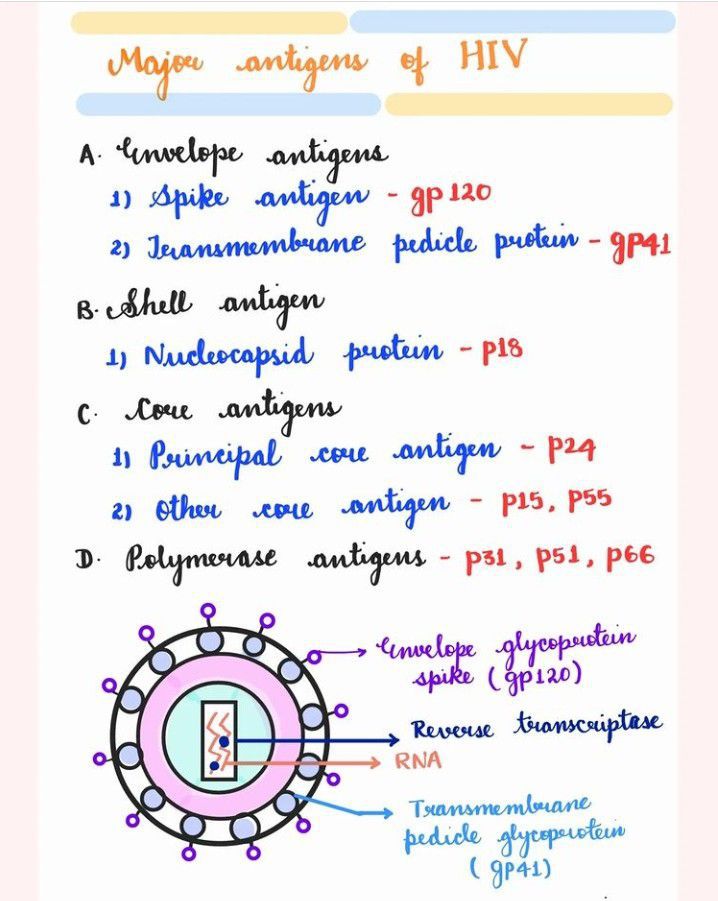 Major antigens of HIV
A. Envelope antigens
1) Spike antigen - gp120
2) Transmembrane pedicle protein - gp41
B. Shell antigen
1) Nucleocapsid protein - p18
C. Core antigens
1) Principal core antigen - p24
2) Other core antigen - p15, p55
D. Polymerase antigens - p31, p51, p66
Envelope glycoprotein
spike (gp120)
Reverse transcriptase
RNA
Transmembrane
pedicle glycoprotein
(gp41)